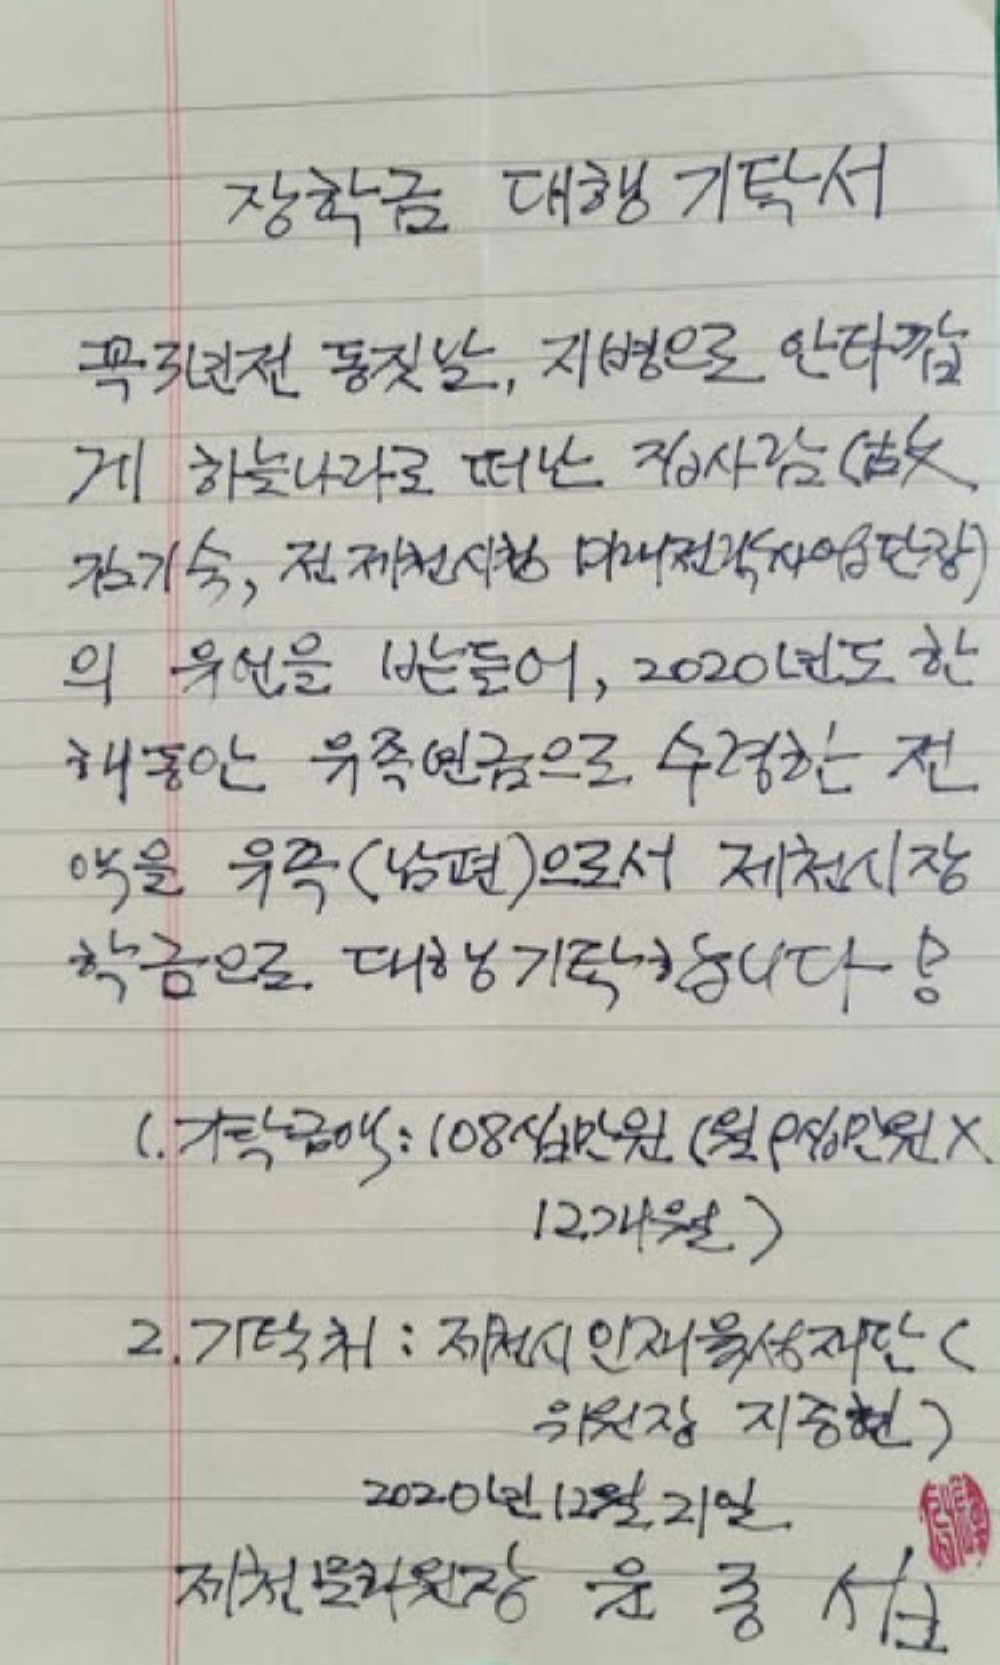 장학금 대행 기탁서
꼭 3년전 동짓날, 지병으로 안타깝
게 하늘나라로 떠난 집사람(故
김기숙, 전 제천시청 미래전략사업단장)
의 유언을 받들어, 2020년도 한
해동안 유족연금으로 수령한 전
액을 유족(남편)으로서 제천시장
학금으로 대행 기탁합니다!
1. 기탁금액 : 108십만원 (월 9십만원 X
12개월)
2. 기탁처 : 제천시 인재육성재단 (
위원장 지중현)
2020년 12월 21일
제천문화원장 윤종섭